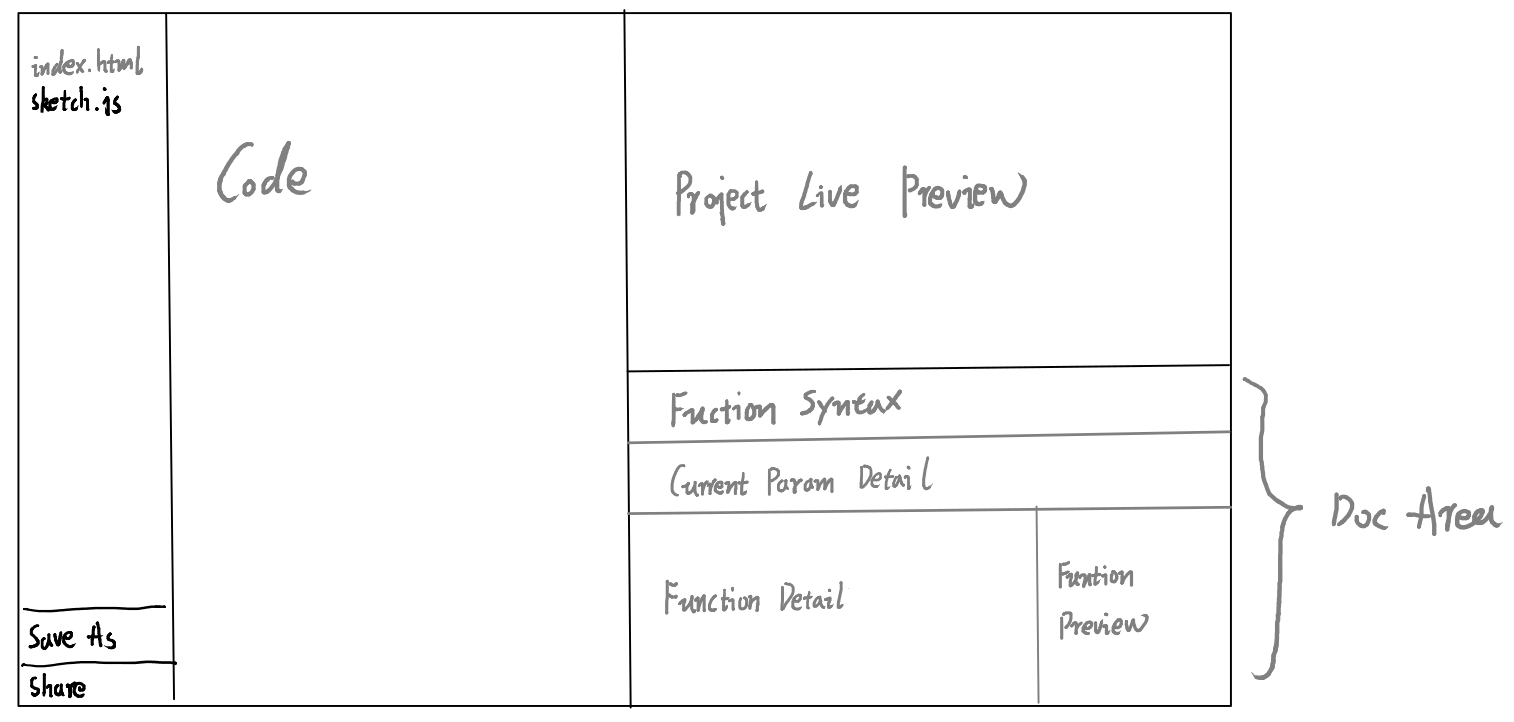 index.html
sketch.js
Save As
Share
Code
Project Live Preview
Fuction Syntax
Current Param Detail
Function Detail
Funtion
Preview
Doc Area